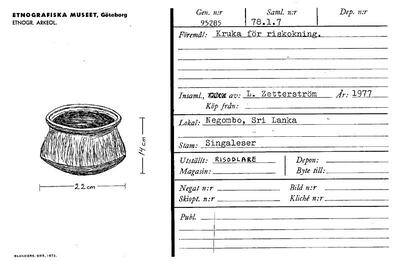 ETNOGRAFISKA MUSEET, Göteborg
ETNOGR. ARKEOL.
14 cm
22 cm
Gen. n:r Saml. n:r Dep. n:r
95285 78.1.7
Föremål: Kruka för riskokning.
Insaml. av: L. Zetterström År: 1977
Köp från:
Lokal: Negombo, Sri Lanka
Stam: Singaleser
Utställt: RISODLARE Depon:
Magasin: Byte till:
Negat n:r Bild n:r
Skiopt. n:r Kliché n:r
Publ.